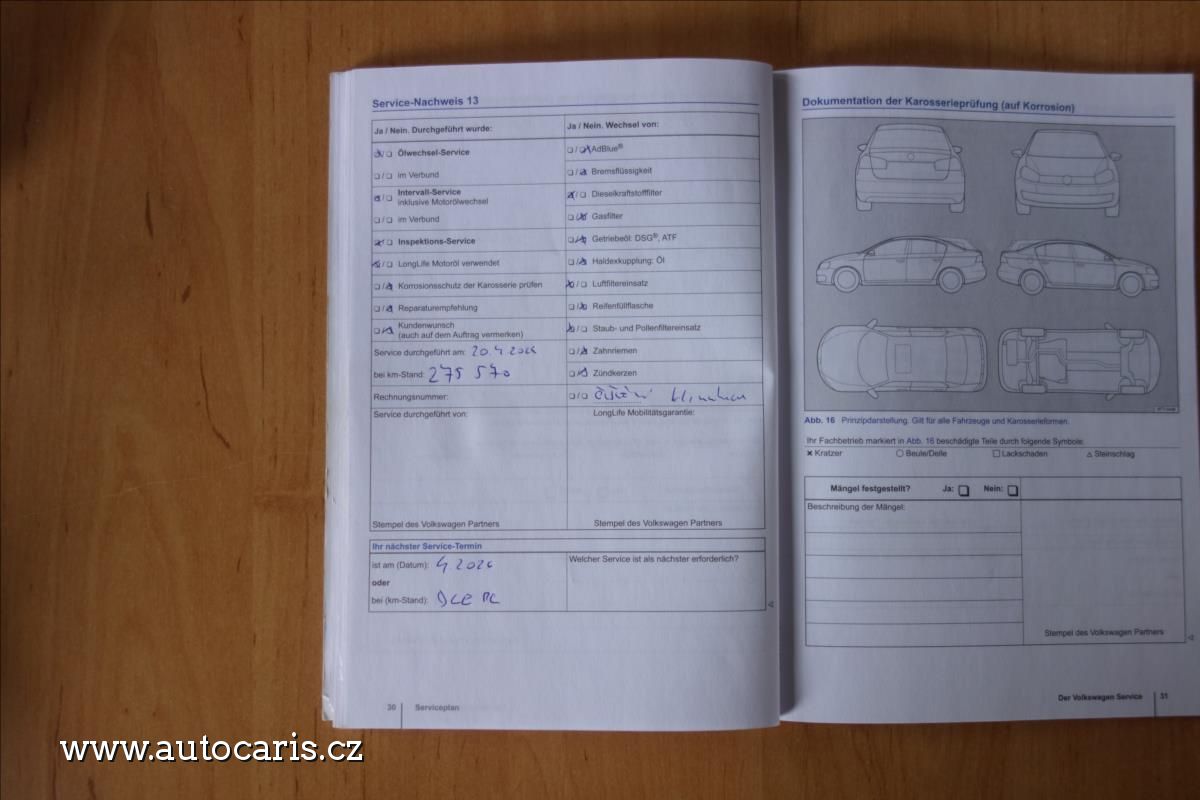 Service-Nachweis 13
Ja / Nein. Durchgeführt wurde:
Ja / Nein. Wechsel von:
Ölwechsel-Service
im Verbund
Intervall-Service
inklusive Motorölwechsel
im Verbund
Inspektions-Service
LongLife Motoröl verwendet
Korrosionsschutz der Karosserie prüfen
Reparaturempfehlung
Kundenwunsch
(auch auf dem Auftrag vermerken)
Service durchgeführt am: 20.4.2024
bei km-Stand: 275 570
Rechnungsnummer:
AdBlue®
Bremsflüssigkeit
Dieselkraftstofffilter
Gasfilter
Getriebeöl: DSG®, ATF
Haldexkupplung: Öl
Luftfiltereinsatz
Reifenfüllflasche
Staub- und Pollenfiltereinsatz
Zahnriemen
Zündkerzen
Service durchgeführt von:
LongLife Mobilitätsgarantie:
Stempel des Volkswagen Partners
Stempel des Volkswagen Partners
Ihr nächster Service-Termin
ist am (Datum): 4.2026
oder
bei (km-Stand): DLE PC
Welcher Service ist als nächster erforderlich?
30 Serviceplan
Dokumentation der Karosserieprüfung (auf Korrosion)
Abb. 16 Prinzipdarstellung. Gilt für alle Fahrzeuge und Karosserieformen.
Ihr Fachbetrieb markiert in Abb. 16 beschädigte Teile durch folgende Symbole:
Kratzer
Beule/Delle
Lackschaden
Steinschlag
Mängel festgestellt? Ja: Nein:
Beschreibung der Mängel:
Stempel des Volkswagen Partners
Der Volkswagen Service 31
www.autocaris.cz